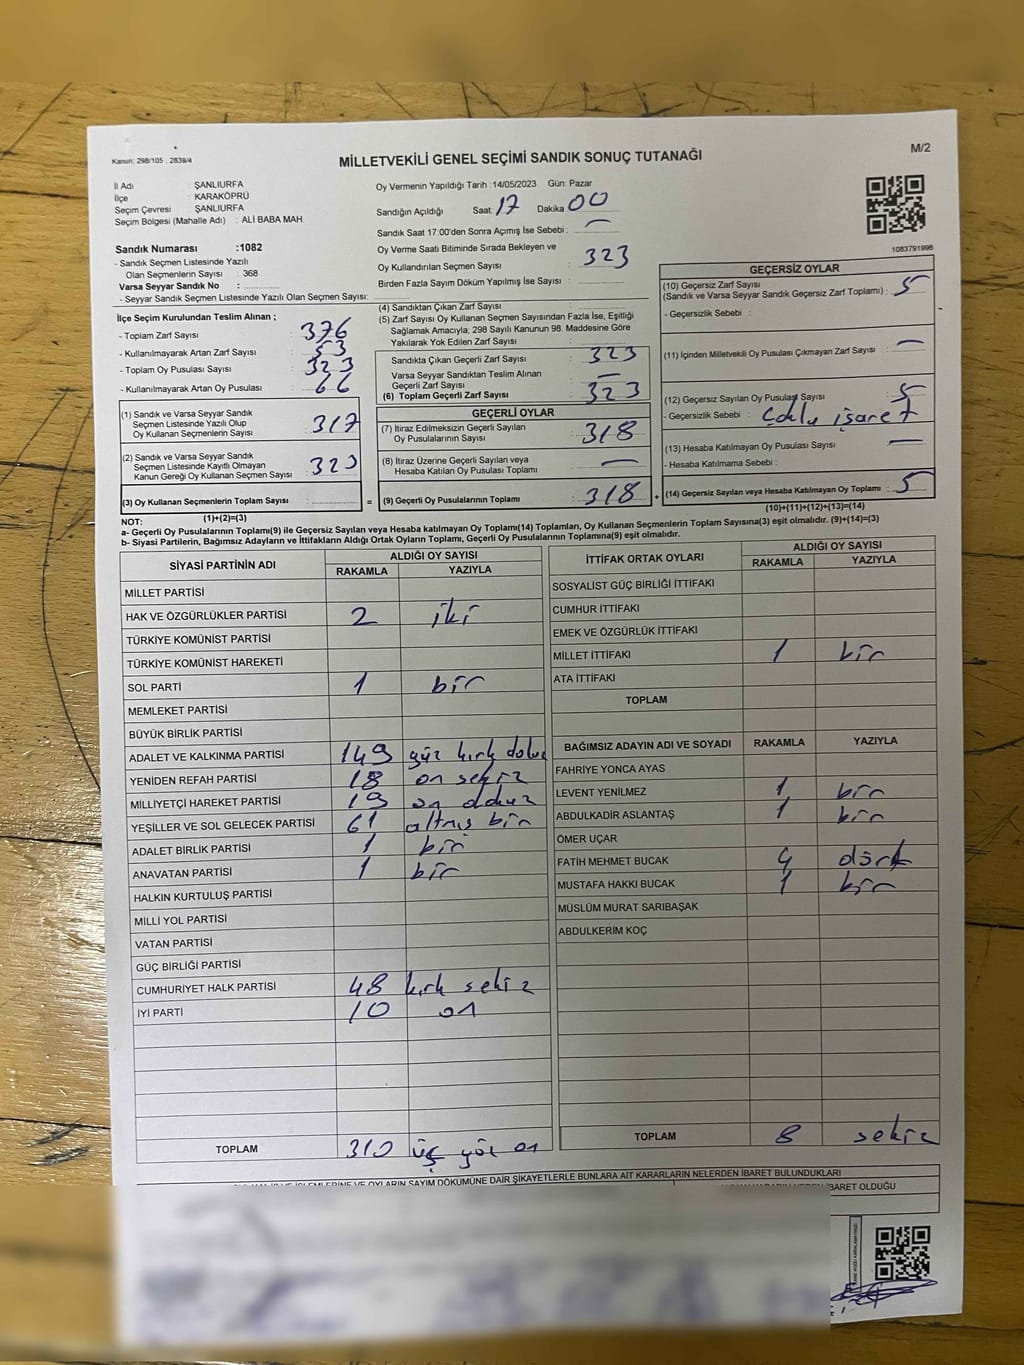 Kanun; 298/105 , 2839/4
MİLLETVEKİLİ GENEL SEÇİMİ SANDIK SONUÇ TUTANAĞI
M/2
İl Adı : ŞANLIURFA
İlçe : KARAKÖPRÜ
Seçim Çevresi : ŞANLIURFA
Seçim Bölgesi (Mahalle Adı) : ALİ BABA MAH.
Sandık Numarası :1082
- Sandık Seçmen Listesinde Yazılı
Olan Seçmenlerin Sayısı : 368
Varsa Seyyar Sandık No :
- Seyyar Sandık Seçmen Listesinde Yazılı Olan Seçmen Sayısı:
Oy Vermenin Yapıldığı Tarih :14/05/2023 Gün: Pazar
Sandığın Açıldığı Saat: 17 Dakika 00
Sandık Saat 17:00'den Sonra Açılmış İse Sebebi : —
Oy Verme Saati Bitiminde Sırada Bekleyen ve
Oy Kullandırılan Seçmen Sayısı : 323
Birden Fazla Sayım Döküm Yapılmış İse Sayısı :
1083791996
İlçe Seçim Kurulundan Teslim Alınan ;
- Toplam Zarf Sayısı : 376
- Kullanılmayarak Artan Zarf Sayısı : 53
- Toplam Oy Pusulası Sayısı : 323
- Kullanılmayarak Artan Oy Pusulası : 66
(1) Sandık ve Varsa Seyyar Sandık
Seçmen Listesinde Yazılı Olup
Oy Kullanan Seçmenlerin Sayısı : 317
(2) Sandık ve Varsa Seyyar Sandık
Seçmen Listesinde Kayıtlı Olmayan
Kanun Gereği Oy Kullanan Seçmen Sayısı : 323
(3) Oy Kullanan Seçmenlerin Toplam Sayısı :
(1)+(2)=(3)
(4) Sandıktan Çıkan Zarf Sayısı :
(5) Zarf Sayısı Oy Kullanan Seçmen Sayısından Fazla İse, Eşitliği
Sağlamak Amacıyla; 298 Sayılı Kanunun 98. Maddesine Göre
Yakılarak Yok Edilen Zarf Sayısı :
Sandıkta Çıkan Geçerli Zarf Sayısı : 323
Varsa Seyyar Sandıktan Teslim Alınan
Geçerli Zarf Sayısı : —
(6) Toplam Geçerli Zarf Sayısı : 323
GEÇERLİ OYLAR
(7) İtiraz Edilmeksizin Geçerli Sayılan
Oy Pusulalarının Sayısı : 318
(8) İtiraz Üzerine Geçerli Sayılan veya
Hesaba Katılan Oy Pusulası Toplamı : —
= (9) Geçerli Oy Pusulalarının Toplamı : 318 +
GEÇERSİZ OYLAR
(10) Geçersiz Zarf Sayısı
(Sandık ve Varsa Seyyar Sandık Geçersiz Zarf Toplamı) : 5
- Geçersizlik Sebebi :
(11) İçinden Milletvekili Oy Pusulası Çıkmayan Zarf Sayısı : —
(12) Geçersiz Sayılan Oy Pusulası Sayısı : 5
- Geçersizlik Sebebi : Çoklu işaret
(13) Hesaba Katılmayan Oy Pusulası Sayısı : —
- Hesaba Katılmama Sebebi :
(14) Geçersiz Sayılan veya Hesaba Katılmayan Oy Toplamı : 5
(10)+(11)+(12)+(13)=(14)
NOT:
a- Geçerli Oy Pusulalarının Toplamı(9) ile Geçersiz Sayılan veya Hesaba katılmayan Oy Toplamı(14) Toplamları, Oy Kullanan Seçmenlerin Toplam Sayısına(3) eşit olmalıdır. (9)+(14)=(3)
b- Siyasi Partilerin, Bağımsız Adayların ve İttifakların Aldığı Ortak Oyların Toplamı, Geçerli Oy Pusulalarının Toplamına(9) eşit olmalıdır.
SİYASİ PARTİNİN ADI
ALDIĞI OY SAYISI
RAKAMLA YAZIYLA
MİLLET PARTİSİ
HAK VE ÖZGÜRLÜKLER PARTİSİ 2 iki
TÜRKİYE KOMÜNİST PARTİSİ
TÜRKİYE KOMÜNİST HAREKETİ
SOL PARTİ 1 bir
MEMLEKET PARTİSİ
BÜYÜK BİRLİK PARTİSİ
ADALET VE KALKINMA PARTİSİ 149 yüz kırk dokuz
YENİDEN REFAH PARTİSİ 18 on sekiz
MİLLİYETÇİ HAREKET PARTİSİ 19 on dokuz
YEŞİLLER VE SOL GELECEK PARTİSİ 61 altmış bir
ADALET BİRLİK PARTİSİ 1 bir
ANAVATAN PARTİSİ 1 bir
HALKIN KURTULUŞ PARTİSİ
MİLLİ YOL PARTİSİ
VATAN PARTİSİ
GÜÇ BİRLİĞİ PARTİSİ
CUMHURİYET HALK PARTİSİ 48 kırk sekiz
İYİ PARTİ 10 on
TOPLAM 310 üç yüz on
İTTİFAK ORTAK OYLARI
ALDIĞI OY SAYISI
RAKAMLA YAZIYLA
SOSYALİST GÜÇ BİRLİĞİ İTTİFAKI
CUMHUR İTTİFAKI
EMEK VE ÖZGÜRLÜK İTTİFAKI
MİLLET İTTİFAKI 1 bir
ATA İTTİFAKI
TOPLAM
BAĞIMSIZ ADAYIN ADI VE SOYADI RAKAMLA YAZIYLA
FAHRİYE YONCA AYAS
LEVENT YENİLMEZ 1 bir
ABDULKADİR ASLANTAŞ 1 bir
ÖMER UÇAR
FATİH MEHMET BUCAK 4 dört
MUSTAFA HAKKI BUCAK 1 bir
MÜSLÜM MURAT SARIBAŞAK
ABDULKERİM KOÇ
TOPLAM 8 sekiz
İŞLEMLERİNE VE OYLARIN SAYIM DÖKÜMÜNE DAİR ŞİKAYETLERLE BUNLARA AİT KARARLARIN NELERDEN İBARET BULUNDUKLARI
İBARET OLDUĞU